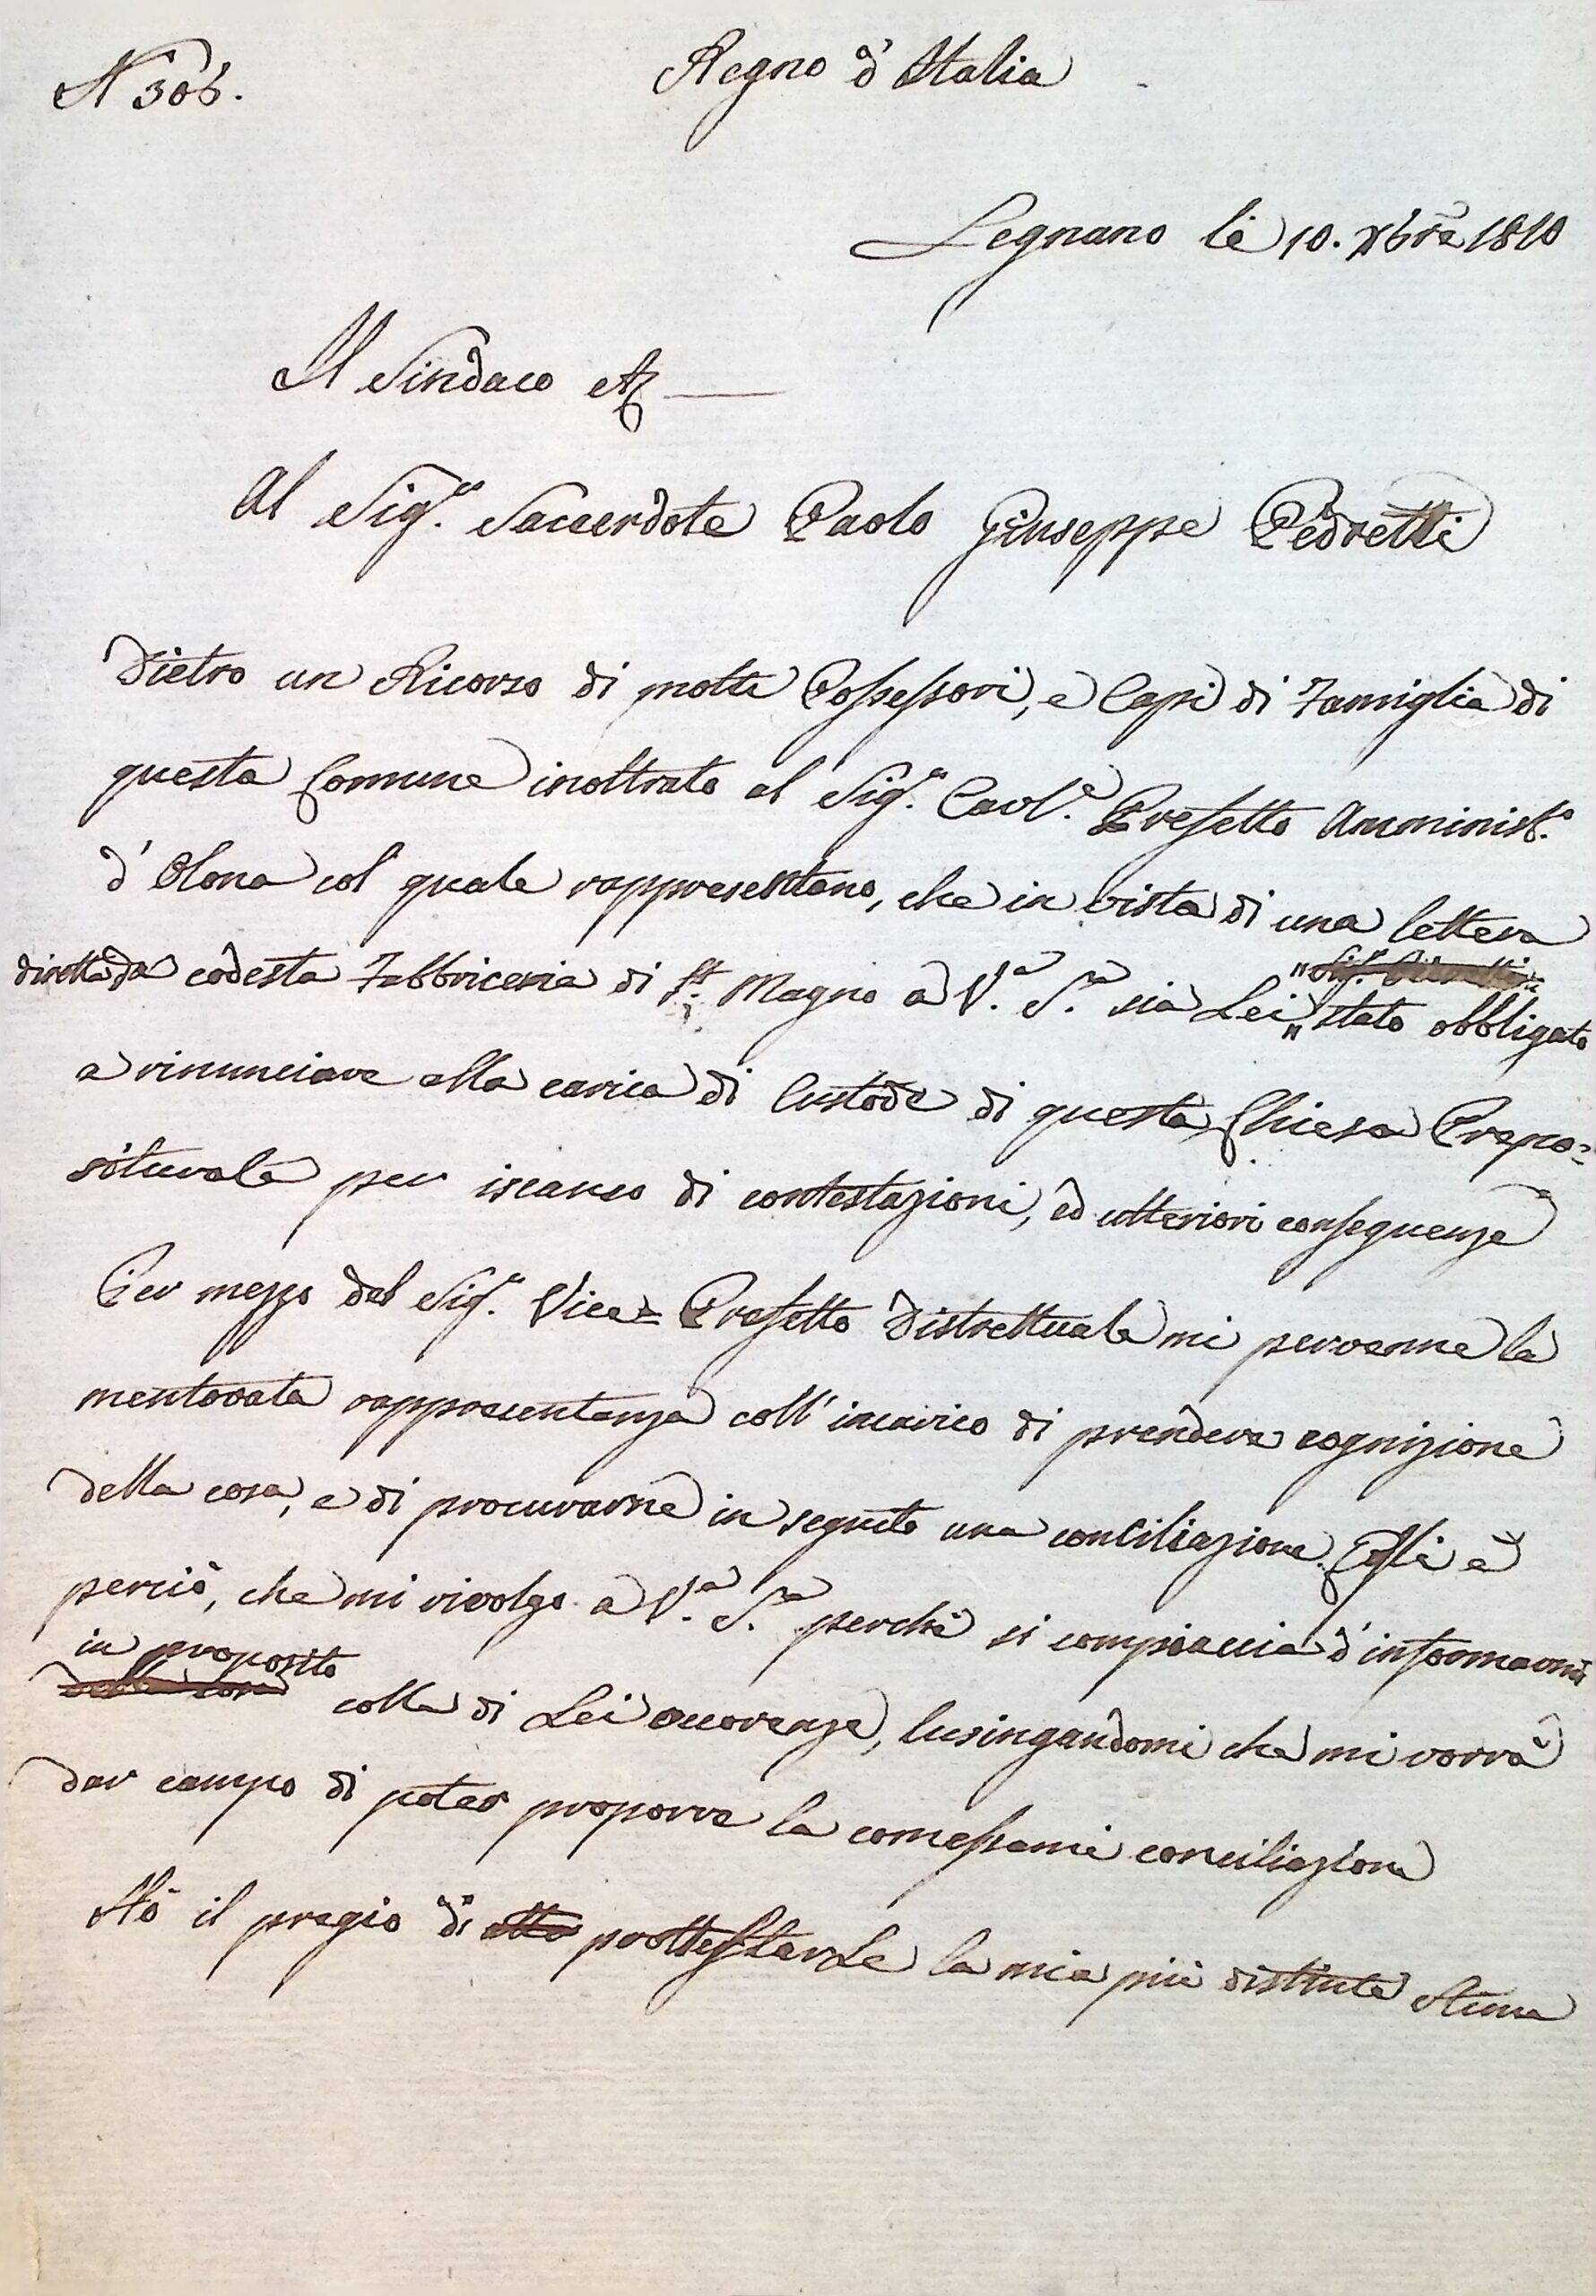 N 306.
Regno d'Italia
Legnano li 10. Xbre 1810
Il Sindaco
Al Sig.r Sacerdote Paolo Giuseppe Pedretti
Dietro un Ricorso di molti Possessori, e Capi di Famiglia di
questa Comune inoltrato al Sig.r Cavl.e Prefetto Amminist.o
d'Olona col quale rappresentano, che in vista di una lettera
diretta da codesta Fabbriceria di St. Magno a V.a S.a sia Lei stato obbligato
a rinunciare alla carica di Custode di questa Chiesa Prepo=
siturale per iscanso di contestazioni, ed ulteriori conseguenze
Per mezzo del Sig.r Vice=Prefetto Distrettuale mi pervenne la
mentovata rappresentanza coll'incarico di prendere cognizione
della cosa, e di procurarne in seguito una conciliazione. Egli è
perciò, che mi rivolgo a V.a S.a perchè si compiaccia d'informarmi
in proposito
della cosa colle di Lei occorenze, lusingandomi che mi vorrà
dar campo di poter proporre la comessami conciliazione
Hò il pregio di prottestarLe la mia più distinta stima